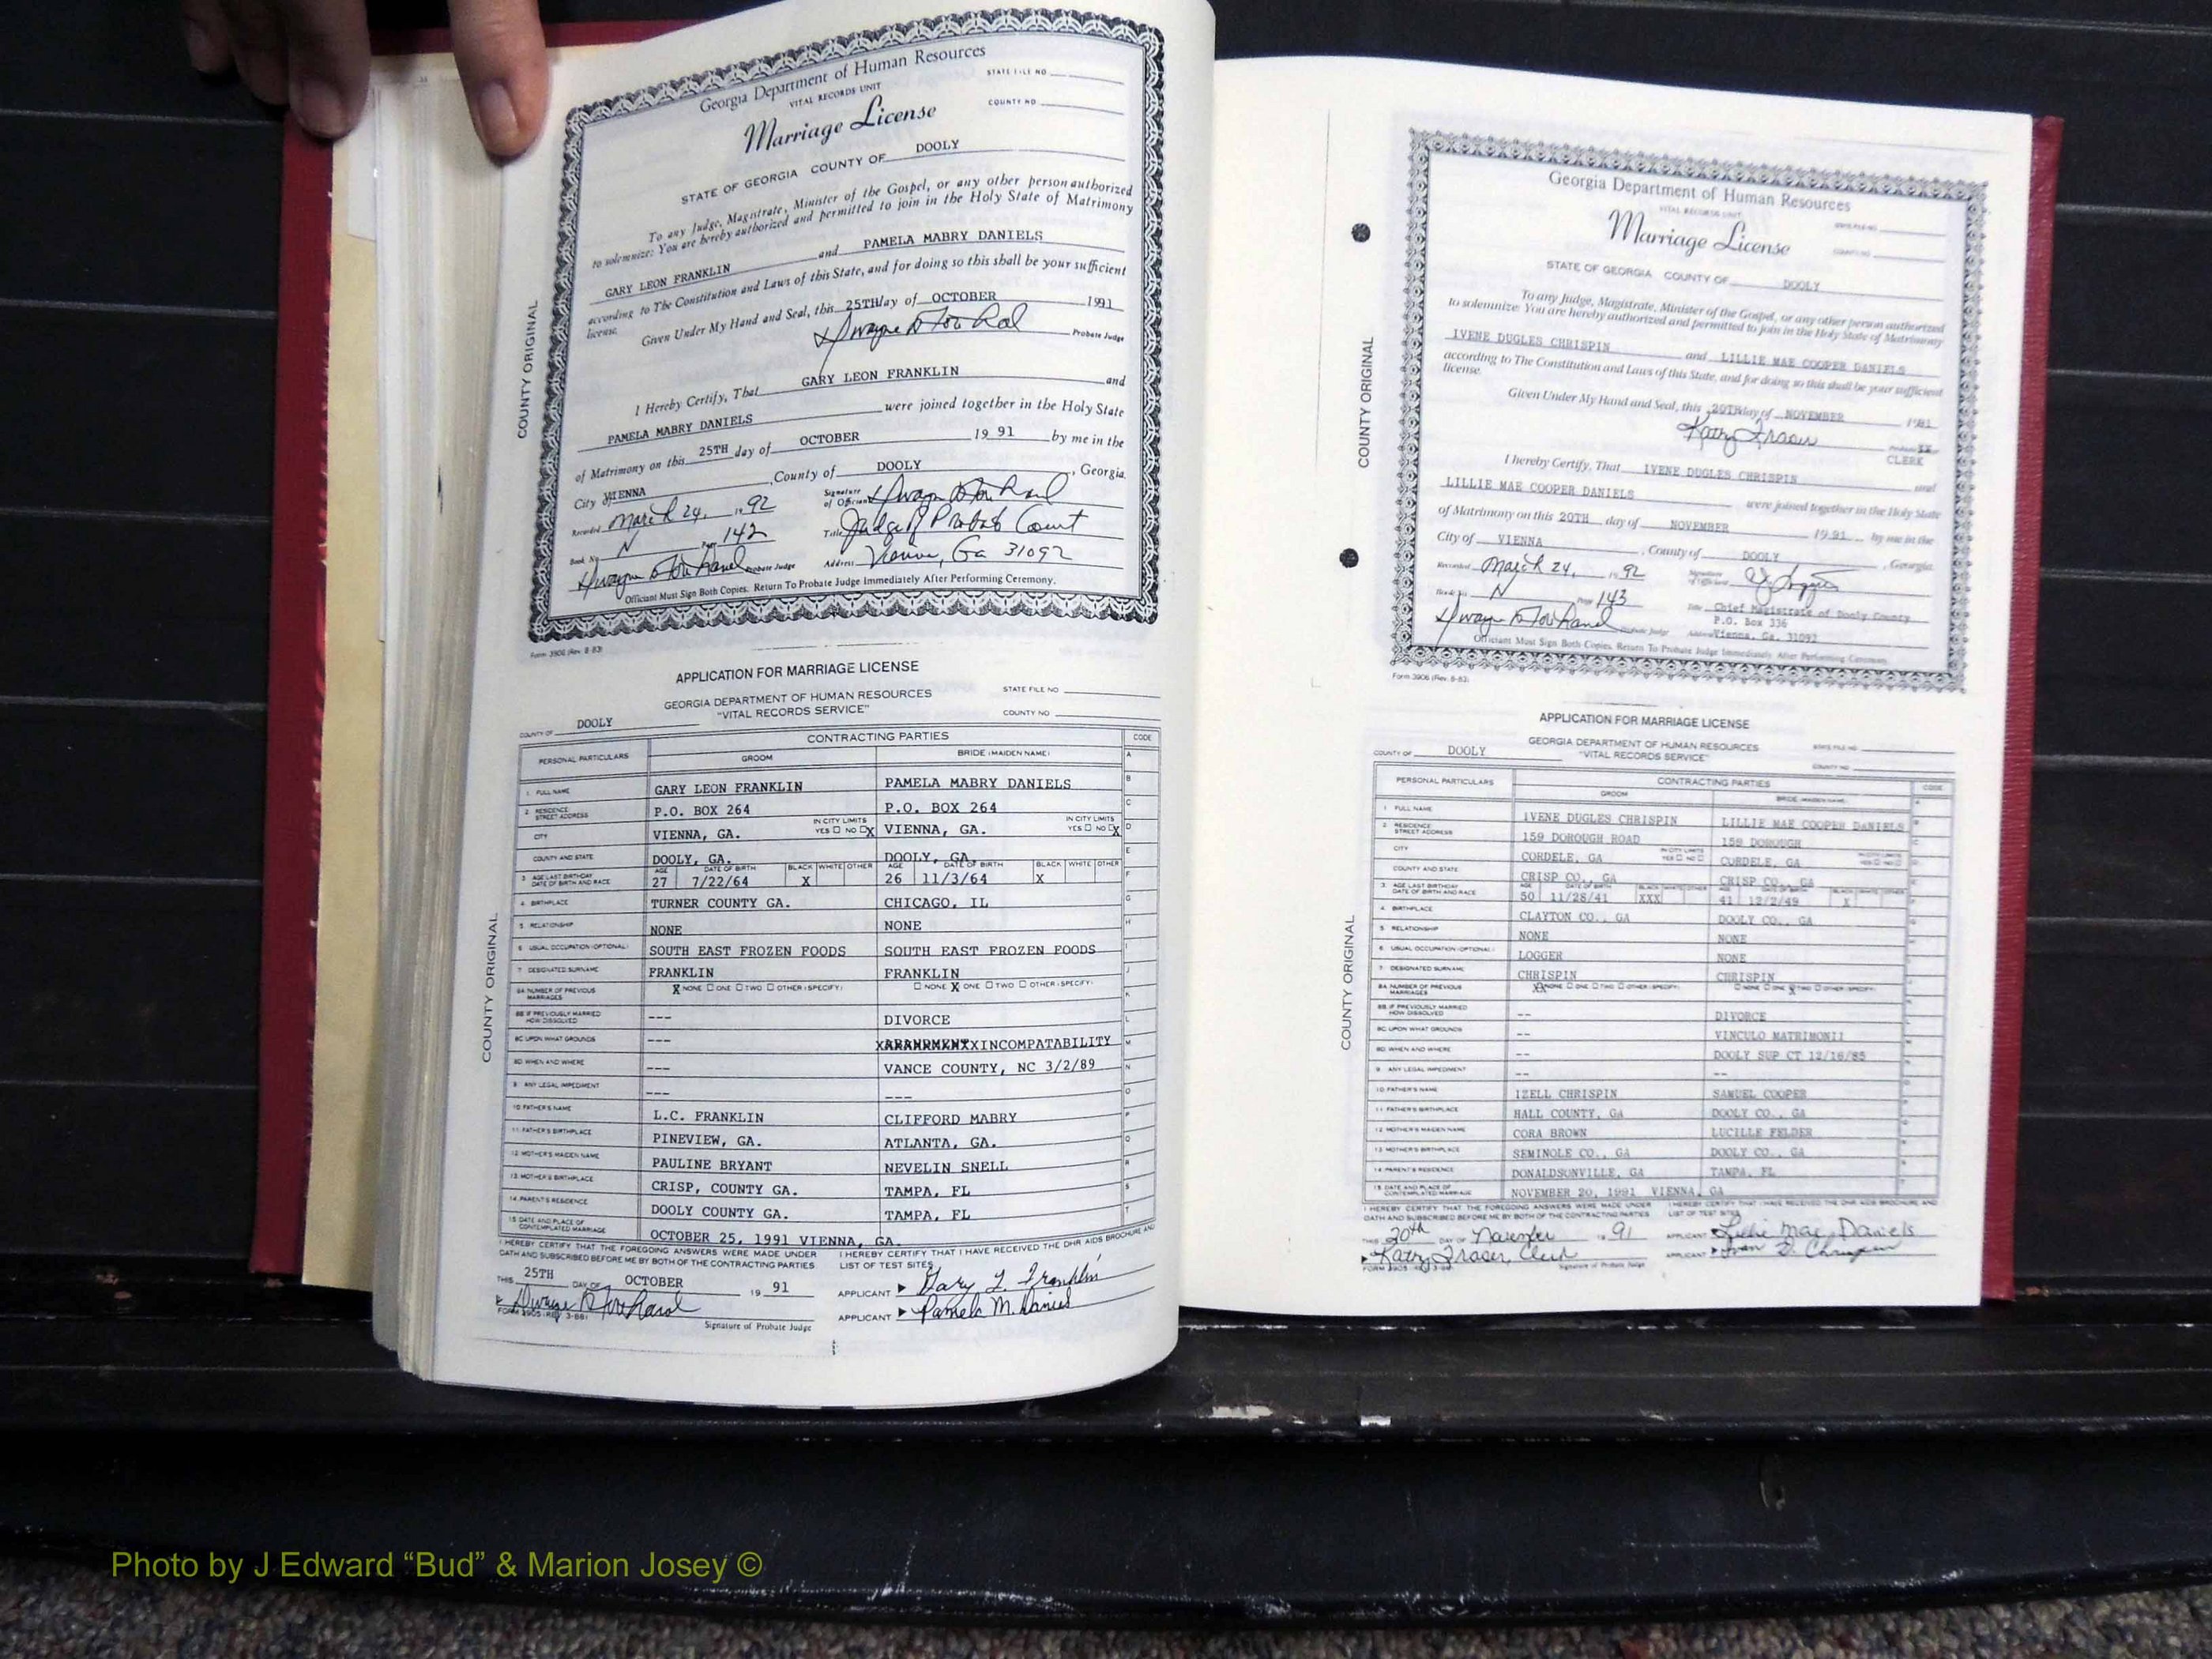 Georgia Department of Human Resources
STATE FILE NO.
VITAL RECORDS UNIT
COUNTY NO.
Marriage License
STATE OF GEORGIA COUNTY OF DOOLY
To any Judge, Magistrate, Minister of the Gospel, or any other person authorized
to solemnize: You are hereby authorized and permitted to join in the Holy State of Matrimony
GARY LEON FRANKLIN and PAMELA MABRY DANIELS
according to The Constitution and Laws of this State, and for doing so this shall be your sufficient
license.
Given Under My Hand and Seal, this 25TH day of OCTOBER 1991
Probate Judge
I Hereby Certify, That GARY LEON FRANKLIN and
PAMELA MABRY DANIELS were joined together in the Holy State
of Matrimony on this 25TH day of OCTOBER 19 91 by me in the
City of VIENNA, County of DOOLY, Georgia.
Recorded March 24, 19 92 Signature of Official
Book No. N Page 142 Title Judge of Probate Court
Probate Judge Address Vienna, Ga 31092
Officiant Must Sign Both Copies. Return To Probate Judge Immediately After Performing Ceremony.
Form 3906 (Rev. 8-83)
COUNTY ORIGINAL
APPLICATION FOR MARRIAGE LICENSE
GEORGIA DEPARTMENT OF HUMAN RESOURCES
STATE FILE NO
"VITAL RECORDS SERVICE"
COUNTY NO
COUNTY OF DOOLY
PERSONAL PARTICULARS CONTRACTING PARTIES CODE
GROOM BRIDE (MAIDEN NAME)
1 FULL NAME GARY LEON FRANKLIN PAMELA MABRY DANIELS
2 RESIDENCE STREET ADDRESS P.O. BOX 264 P.O. BOX 264
CITY VIENNA, GA. IN CITY LIMITS YES NO X VIENNA, GA. IN CITY LIMITS YES NO X
COUNTY AND STATE DOOLY, GA. DOOLY, GA.
3 AGE LAST BIRTHDAY DATE OF BIRTH AND RACE AGE 27 DATE OF BIRTH 7/22/64 BLACK X WHITE OTHER AGE 26 DATE OF BIRTH 11/3/64 BLACK X WHITE OTHER
4 BIRTHPLACE TURNER COUNTY GA. CHICAGO, IL
5 RELATIONSHIP NONE NONE
6 USUAL OCCUPATION (OPTIONAL) SOUTH EAST FROZEN FOODS SOUTH EAST FROZEN FOODS
7 DESIGNATED SURNAME FRANKLIN FRANKLIN
8A NUMBER OF PREVIOUS MARRIAGES X NONE ONE TWO OTHER (SPECIFY) NONE X ONE TWO OTHER (SPECIFY)
8B IF PREVIOUSLY MARRIED HOW DISSOLVED --- DIVORCE
8C UPON WHAT GROUNDS --- INCOMPATABILITY
8D WHEN AND WHERE --- VANCE COUNTY, NC 3/2/89
9 ANY LEGAL IMPEDIMENT --- ---
10 FATHER'S NAME L.C. FRANKLIN CLIFFORD MABRY
11 FATHER'S BIRTHPLACE PINEVIEW, GA. ATLANTA, GA.
12 MOTHER'S MAIDEN NAME PAULINE BRYANT NEVELIN SNELL
13 MOTHER'S BIRTHPLACE CRISP, COUNTY GA. TAMPA, FL
14 PARENT'S RESIDENCE DOOLY COUNTY GA. TAMPA, FL
15 DATE AND PLACE OF CONTEMPLATED MARRIAGE OCTOBER 25, 1991 VIENNA, GA.
I HEREBY CERTIFY THAT THE FOREGOING ANSWERS WERE MADE UNDER I HEREBY CERTIFY THAT I HAVE RECEIVED THE DHR AIDS BROCHURE AND
OATH AND SUBSCRIBED BEFORE ME BY BOTH OF THE CONTRACTING PARTIES LIST OF TEST SITES
THIS 25TH DAY OF OCTOBER 19 91 APPLICANT Gary L. Franklin
APPLICANT Pamela M. Daniels
FORM 3905 (REV. 3-88) Signature of Probate Judge
COUNTY ORIGINAL
Georgia Department of Human Resources
VITAL RECORDS UNIT STATE FILE NO.
Marriage License COUNTY NO.
STATE OF GEORGIA COUNTY OF DOOLY
To any Judge, Magistrate, Minister of the Gospel, or any other person authorized
to solemnize: You are hereby authorized and permitted to join in the Holy State of Matrimony
IVENE DUGLES CHRISPIN and LILLIE MAE COOPER DANIELS
according to The Constitution and Laws of this State, and for doing so this shall be your sufficient
license.
Given Under My Hand and Seal, this 20TH day of NOVEMBER 1991
Kathy Fraser
CLERK
I hereby Certify, That IVENE DUGLES CHRISPIN and
LILLIE MAE COOPER DANIELS were joined together in the Holy State
of Matrimony on this 20TH day of NOVEMBER 19 91 by me in the
City of VIENNA, County of DOOLY, Georgia.
Recorded March 24, 19 92 Signature of Official
Book No. N Page 143 Title Chief Magistrate of Dooly County
P.O. Box 336
Probate Judge Address Vienna, Ga. 31092
Officiant Must Sign Both Copies. Return To Probate Judge Immediately After Performing Ceremony.
Form 3906 (Rev. 8-83)
COUNTY ORIGINAL
APPLICATION FOR MARRIAGE LICENSE
GEORGIA DEPARTMENT OF HUMAN RESOURCES STATE FILE NO
COUNTY OF DOOLY "VITAL RECORDS SERVICE" COUNTY NO
PERSONAL PARTICULARS CONTRACTING PARTIES CODE
GROOM BRIDE (MAIDEN NAME)
1 FULL NAME IVENE DUGLES CHRISPIN LILLIE MAE COOPER DANIELS
2 RESIDENCE STREET ADDRESS 159 DOROUGH ROAD 159 DOROUGH
CITY CORDELE, GA IN CITY LIMITS YES NO CORDELE, GA IN CITY LIMITS YES NO
COUNTY AND STATE CRISP CO., GA CRISP CO., GA
3 AGE LAST BIRTHDAY DATE OF BIRTH AND RACE 50 11/28/41 XXX 41 12/2/49 X
4 BIRTHPLACE CLAYTON CO., GA DOOLY CO., GA
5 RELATIONSHIP NONE NONE
6 USUAL OCCUPATION (OPTIONAL) LOGGER NONE
7 DESIGNATED SURNAME CHRISPIN CHRISPIN
8A NUMBER OF PREVIOUS MARRIAGES NONE ONE TWO OTHER (SPECIFY) NONE ONE TWO OTHER (SPECIFY)
8B IF PREVIOUSLY MARRIED HOW DISSOLVED -- DIVORCE
8C UPON WHAT GROUNDS -- VINCULO MATRIMONII
8D WHEN AND WHERE -- DOOLY SUP CT 12/16/85
9 ANY LEGAL IMPEDIMENT -- --
10 FATHER'S NAME IZELL CHRISPIN SAMUEL COOPER
11 FATHER'S BIRTHPLACE HALL COUNTY, GA DOOLY CO., GA
12 MOTHER'S MAIDEN NAME CORA BROWN LUCILLE FELDER
13 MOTHER'S BIRTHPLACE SEMINOLE CO., GA DOOLY CO., GA
14 PARENT'S RESIDENCE DONALDSONVILLE, GA TAMPA, FL
15 DATE AND PLACE OF CONTEMPLATED MARRIAGE NOVEMBER 20, 1991 VIENNA, GA
I HEREBY CERTIFY THAT THE FOREGOING ANSWERS WERE MADE UNDER I HEREBY CERTIFY THAT I HAVE RECEIVED THE DHR AIDS BROCHURE AND
OATH AND SUBSCRIBED BEFORE ME BY BOTH OF THE CONTRACTING PARTIES LIST OF TEST SITES
THIS 20th DAY OF November 19 91 APPLICANT Lillie Mae Daniels
Kathy Fraser, Clerk APPLICANT
Signature of Probate Judge
COUNTY ORIGINAL
Photo by J Edward “Bud” & Marion Josey ©